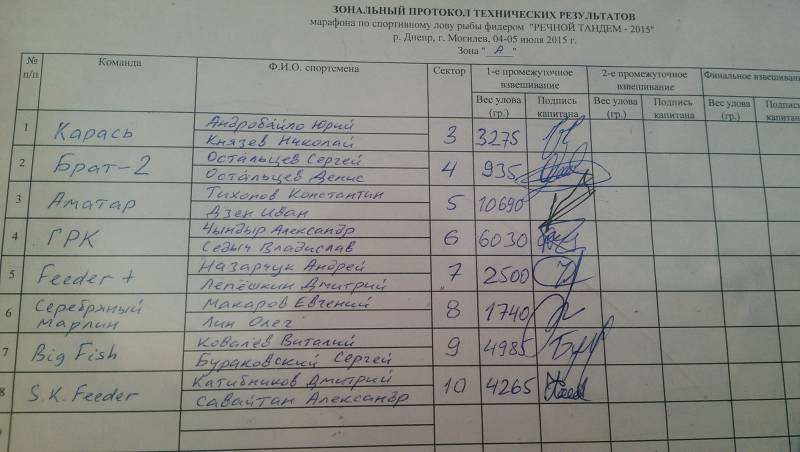 ЗОНАЛЬНЫЙ ПРОТОКОЛ ТЕХНИЧЕСКИХ РЕЗУЛЬТАТОВ
марафона по спортивному лову рыбы фидером "РЕЧНОЙ ТАНДЕМ - 2015"
р. Днепр, г. Могилев, 04-05 июля 2015 г.
Зона "А"
№ п/п Команда Ф.И.О. спортсмена Сектор 1-е промежуточное взвешивание 2-е промежуточное взвешивание Финальное взвешивани
Вес улова (гр.) Подпись капитана Вес улова (гр.) Подпись капитана Вес улова (гр.) Подпис капитан
1 Карась Андробайло Юрий 3 3275
Князев Николай
2 Брат-2 Остальцев Сергей 4 935
Остальцев Денис
3 Аматар Тихонов Константин 5 10690
Дзен Иван
4 ГРК Чындыр Александр 6 6030
Седыч Владислав
5 Feeder + Назарчук Андрей 7 2500
Лепёшкин Дмитрий
6 Серебряный Марлин Макаров Евгений 8 1740
Лин Олег
7 Big Fish Ковалёв Виталий 9 4985
Бураковский Сергей
8 S.K. Feeder Катибников Дмитрий 10 4265
Савайтан Александр